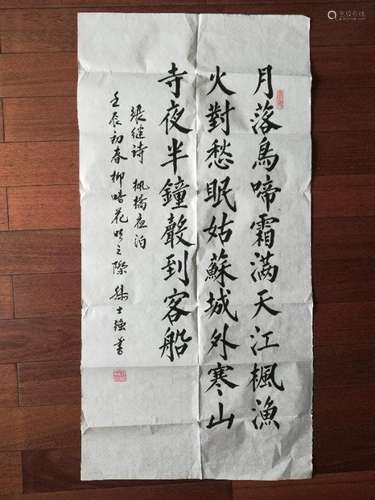 月落烏啼霜满天江楓漁
火對愁眠姑蘇城外寒山
寺夜半鐘聲到客船
張继诗 楓橋夜泊
壬辰初春柳暗花明之際 士强書